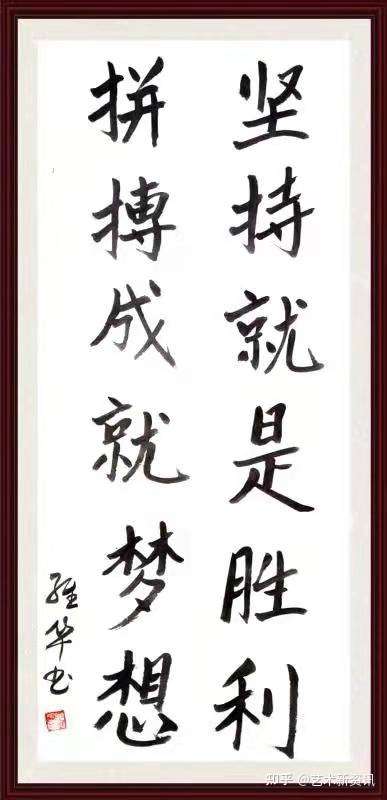 坚持就是胜利
拼搏成就梦想
维华书
知乎 @艺术新资讯